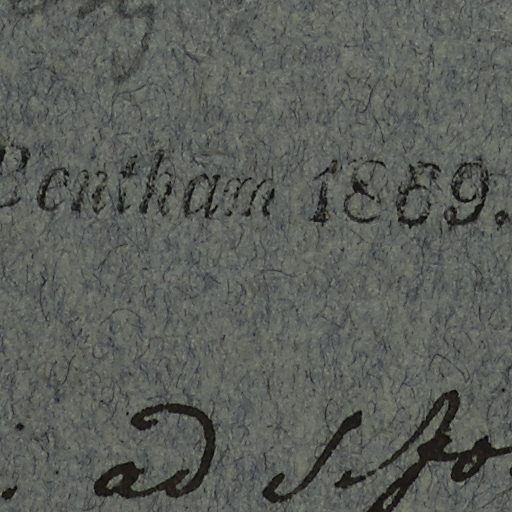 Bentham 1869.
. ad S. Jo